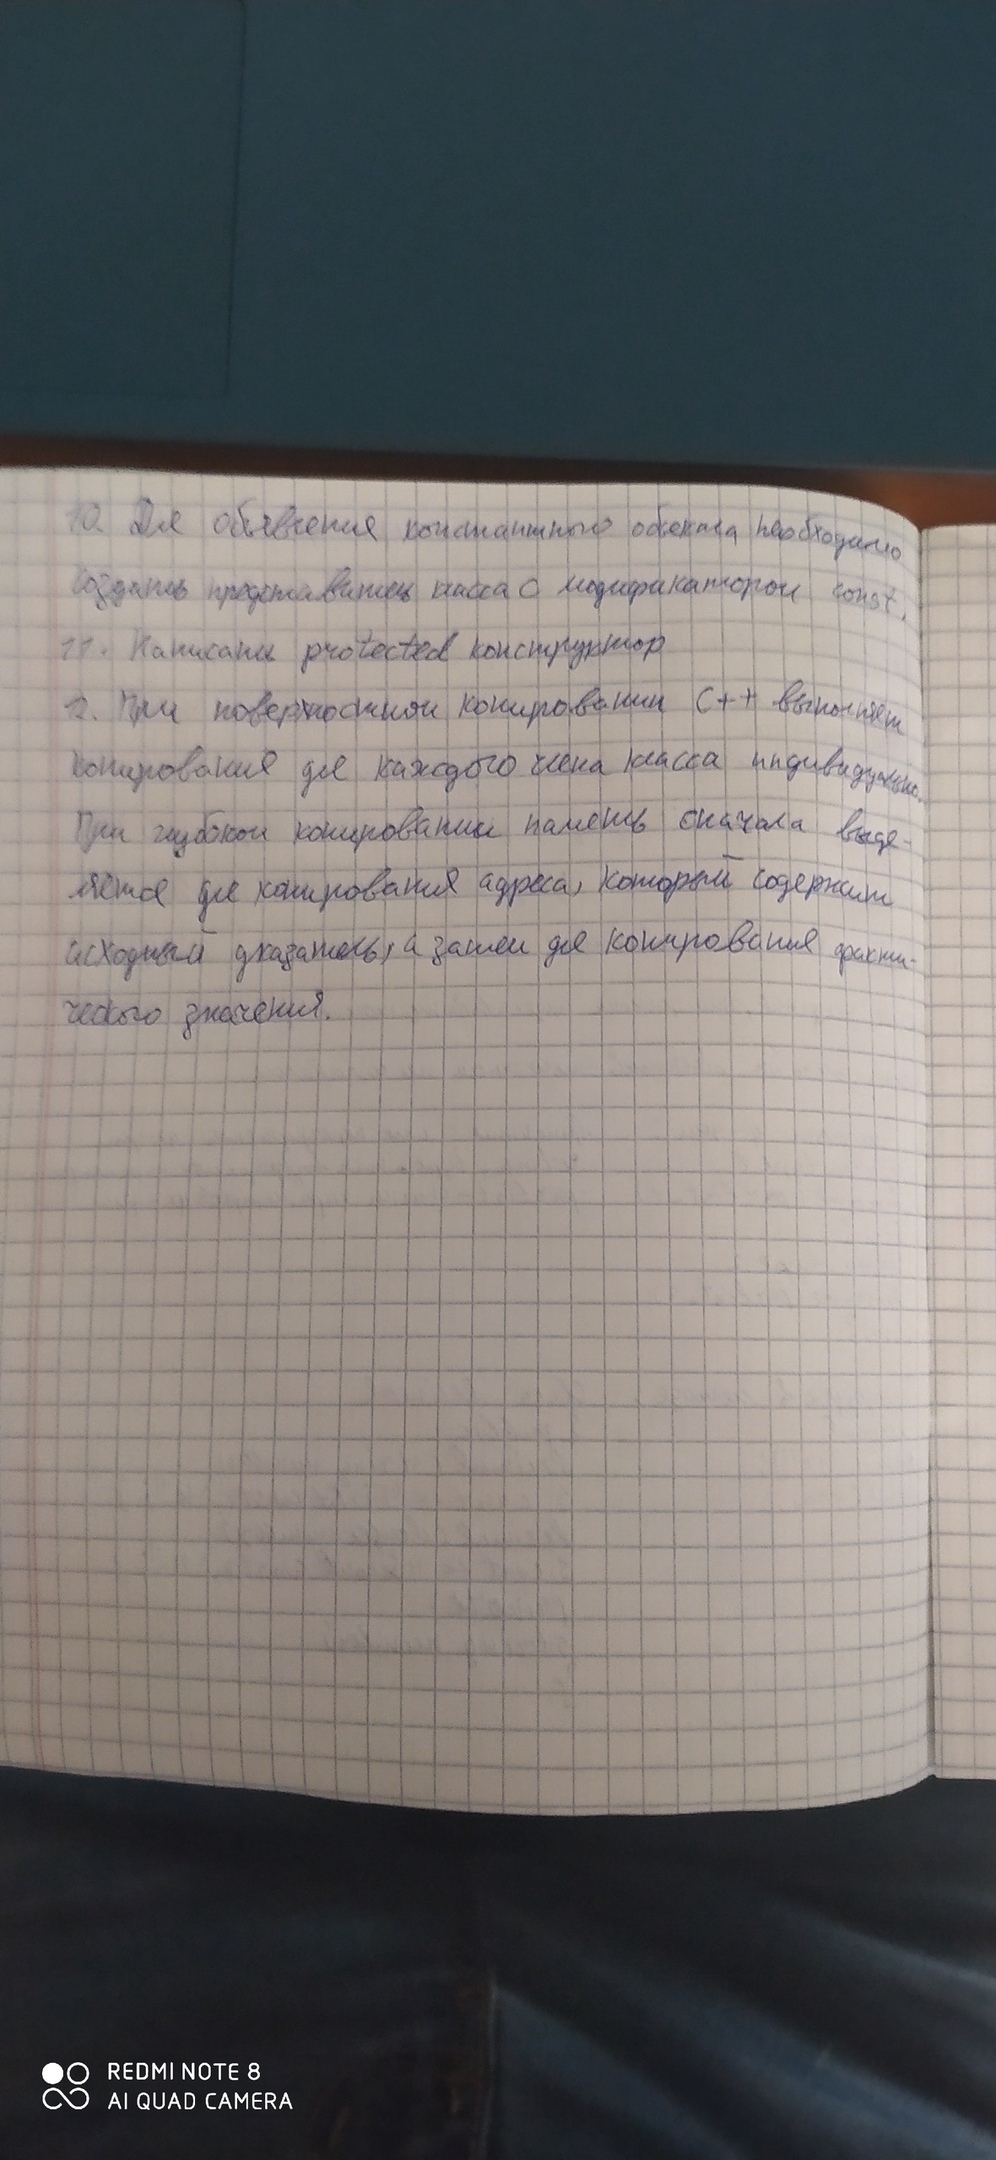 10. Для объявления константного объекта необходимо
создать представитель класса с модификатором const.
11. Написать protected конструктор
12. При поверхностном копировании C++ выполняет
копирование для каждого члена класса индивидуально.
При глубоком копировании память сначала выде-
ляется для копирования адреса, который содержит
исходный указатель, а затем для копирования факти-
ческого значения.
REDMI NOTE 8
AI QUAD CAMERA